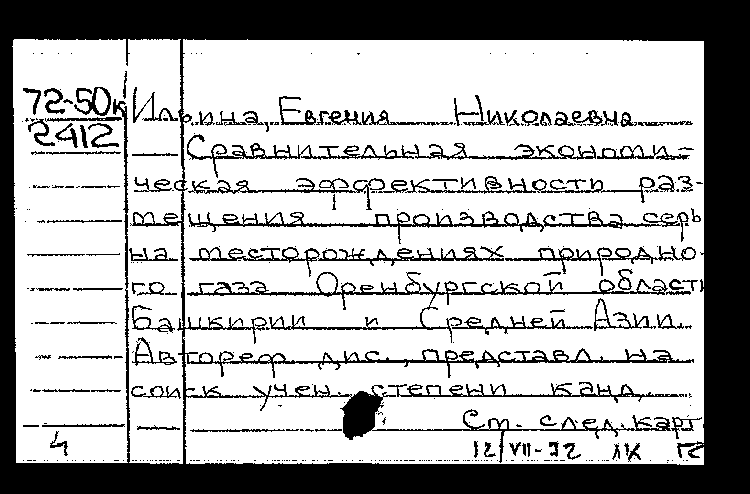 72-50к
2412
Ильина, Евгения Николаевна
Сравнительная экономи-
ческая эффективность раз-
мещения производства серы
на месторождениях природно-
го газа Оренбургской области
Башкирии и Средней Азии.
Автореф. дис., представл. на
соиск учен. степени канд.
См. след. карт.
4
12/VII-72